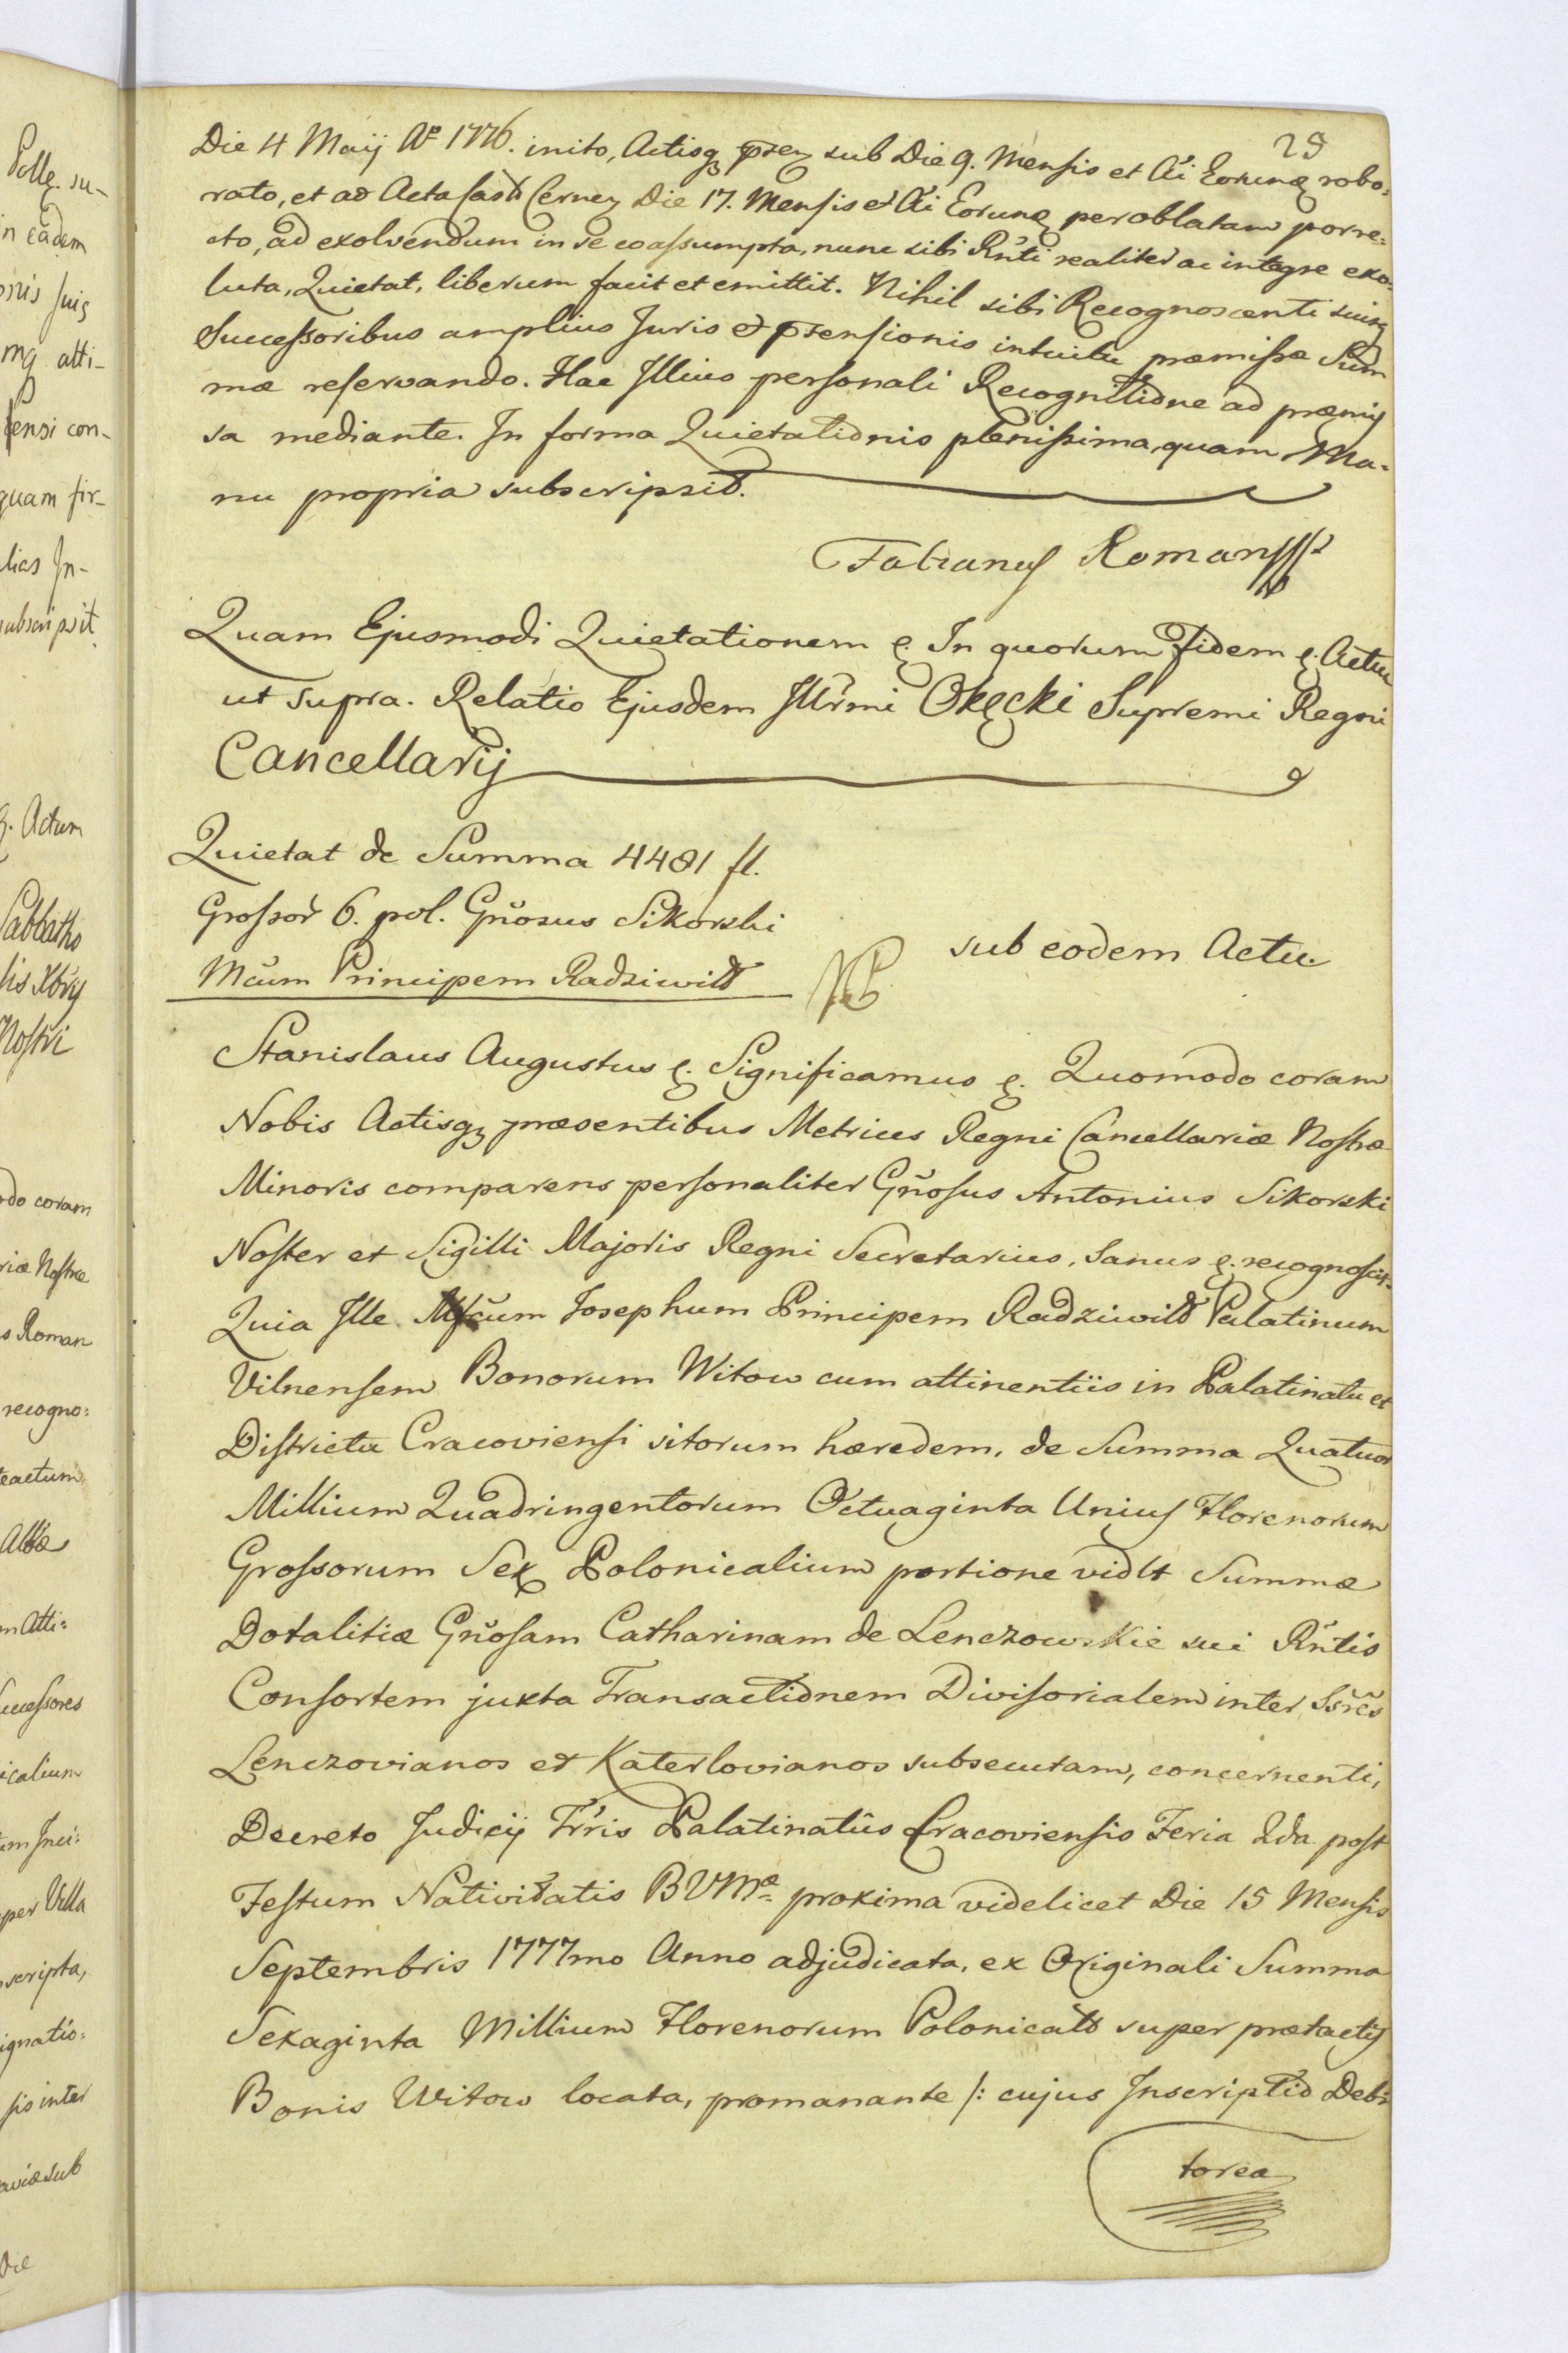 29
Die 4 Maij Aº 1776. inito, Actisq; psen; sub Die 9. Mensis et Ai Eorunq robo=
rato, et ad Acta Castr Cernen Die 17. Mensis et Ai Eorunq per oblatam porre=
cto, ad exolvendum in se coassumpta, nunc sibi Rnti realiter ac integre exo=
luta, Quietat, liberum facit et emittit. Nihil sibi Recognoscenti suisq
Successoribus amplius Juris et prensionis intuitu præmissæ Sum
mæ reservando. Hac Illius personali Recognitione ad præmis
sa mediante. In forma Quietationis plenissima, quam Ma=
nu propria subscripsit.
Fabianus Roman
Quam Ejusmodi Quietationem &. In quorum Fidem &. Actu
ut supra. Relatio Ejusdem Illrmi Okęcki Supremi Regni
Cancellarij
Quietat de Summa 4481 fl.
Grossor 6. pol. Gnosus Sikorski
Mcum Principem Radziwiłł
sub eodem Actu.
Stanislaus Augustus &. Significamus &. Quomodo coram
Nobis Actisq; præsentibus Metrices Regni Cancellariæ Nostræ
Minoris comparens personaliter Gnosus Antonius Sikorski
Noster et Sigilli Majoris Regni Secretarius, Sanus &. recognoscit.
Quia Ille Mcum Josephum Principem Radziwiłł Palatinum
Vilnensem Bonorum Witow cum attinentiis in Palatinatu et
Districtu Cracoviensi sitorum hæredem, de Summa Quatuor
Millium Quadringentorum Octuaginta Unius Florenorum
Grossorum Sex Polonicalium portione vidlt Summæ
Dotalitiæ Gnosam Catharinam de Lenczowskie sui Rntis
Consortem juxta Transactionem Divisorialem inter Ssrcs
Lenczovianos et Katerlovianos subsecutam, concernenti,
Decreto Judicij Trris Palatinatûs Cracoviensis Feria 2da post
Festum Nativitatis BVMæ proxima videlicet Die 15 Mensis
Septembris 1777mo Anno adjudicata, ex Originali Summa
Sexaginta Millium Florenorum Polonical super prætactis
Bonis Witow locata, promanante /: cujus Inscriptio Debi
torea